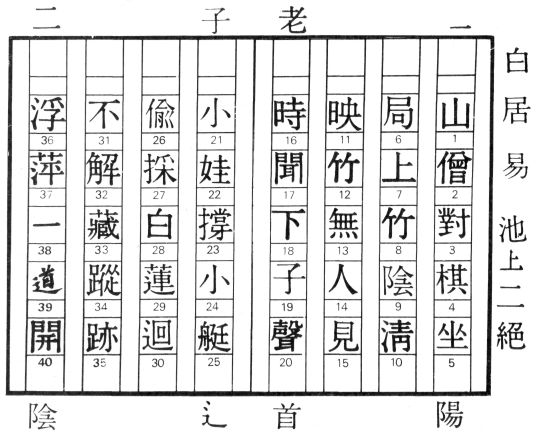 白居易 池上二絕
一 老 子 二
山僧對棋坐
1 2 3 4 5
局上竹陰清
6 7 8 9 10
映竹無人見
11 12 13 14 15
時聞下子聲
16 17 18 19 20
小娃撐小艇
21 22 23 24 25
偷採白蓮迴
26 27 28 29 30
不解藏蹤跡
31 32 33 34 35
浮萍一道開
36 37 38 39 40
陽 首 辶 陰